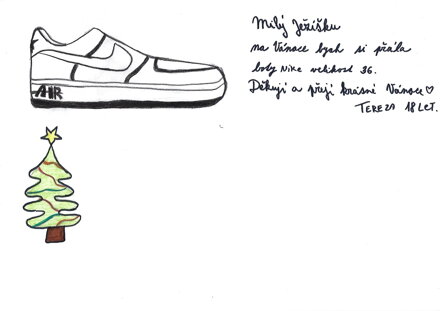 Milý Ježíšku
na Vánoce bych si přála
boty Nike velikost 36.
Děkuji a přeji krásné Vánoce♡
TEREZA 18 LET.
AIR